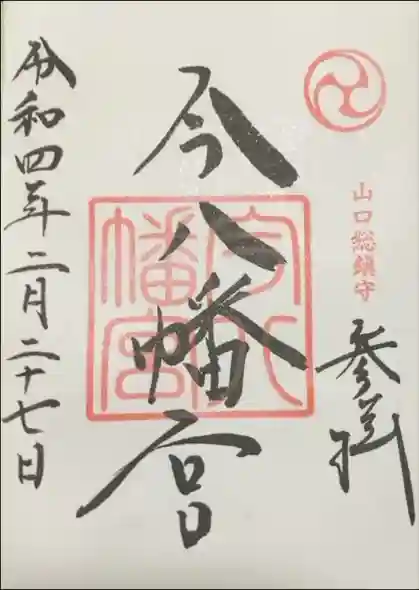 山口総鎮守
参拝
今八幡宮
今八幡宮
令和四年二月二十七日